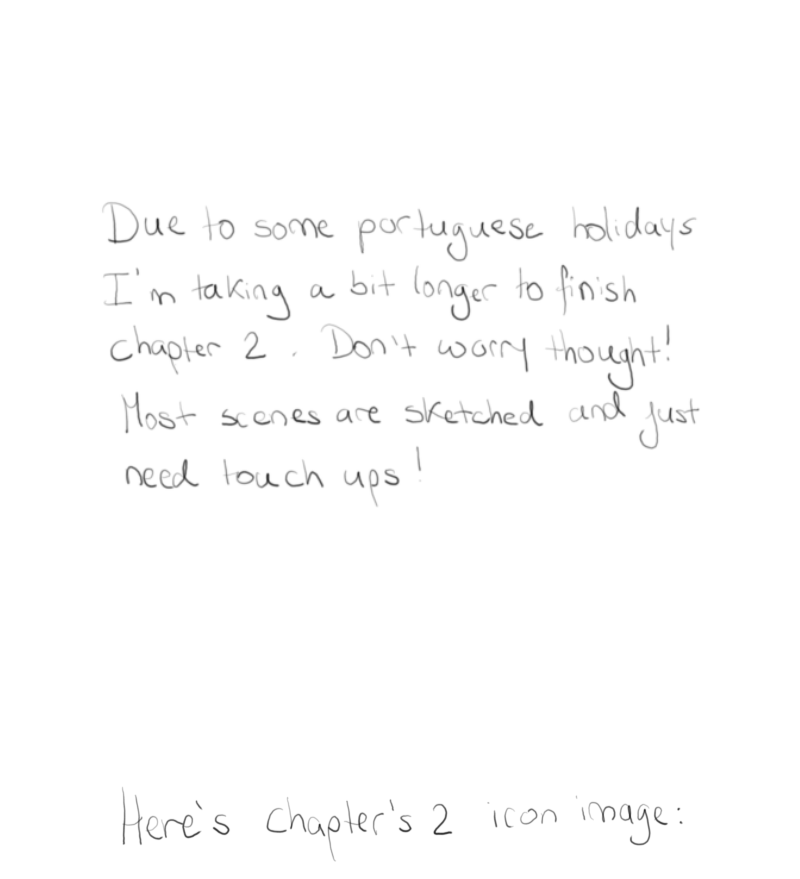 Due to some portuguese holidays
I'm taking a bit longer to finish
chapter 2. Don't worry thought!
Most scenes are sketched and just
need touch ups!
Here's chapter's 2 icon image: